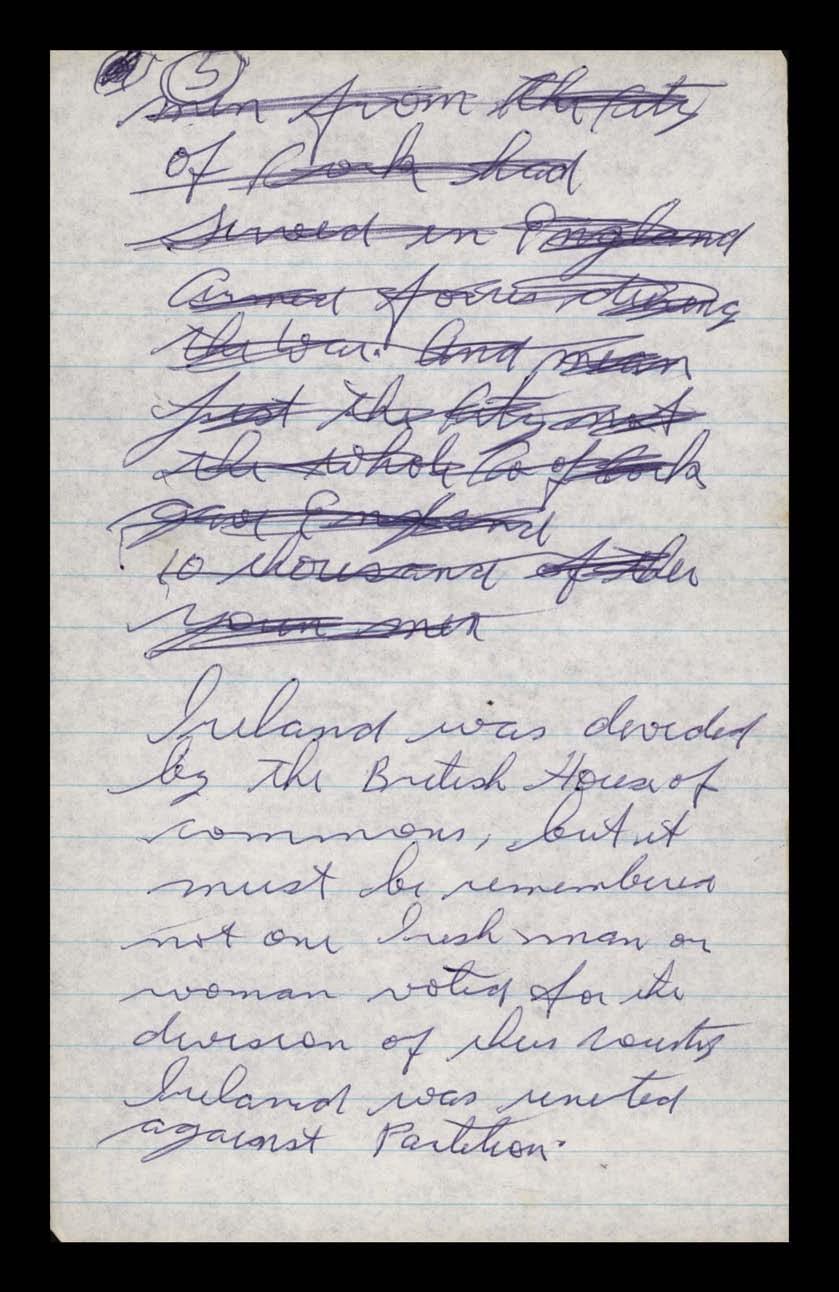 5
men from the City
of Cork had
served in England
armed forces during
the War. And mean
just the City not
the whole Co of Cork
gave England
10 thousand of ther
youn men
Ireland was devided
by the British House of
commons, but it
must be remembered
not one Irish man or
woman voted for the
division of thus country
Ireland was united
against Partition.